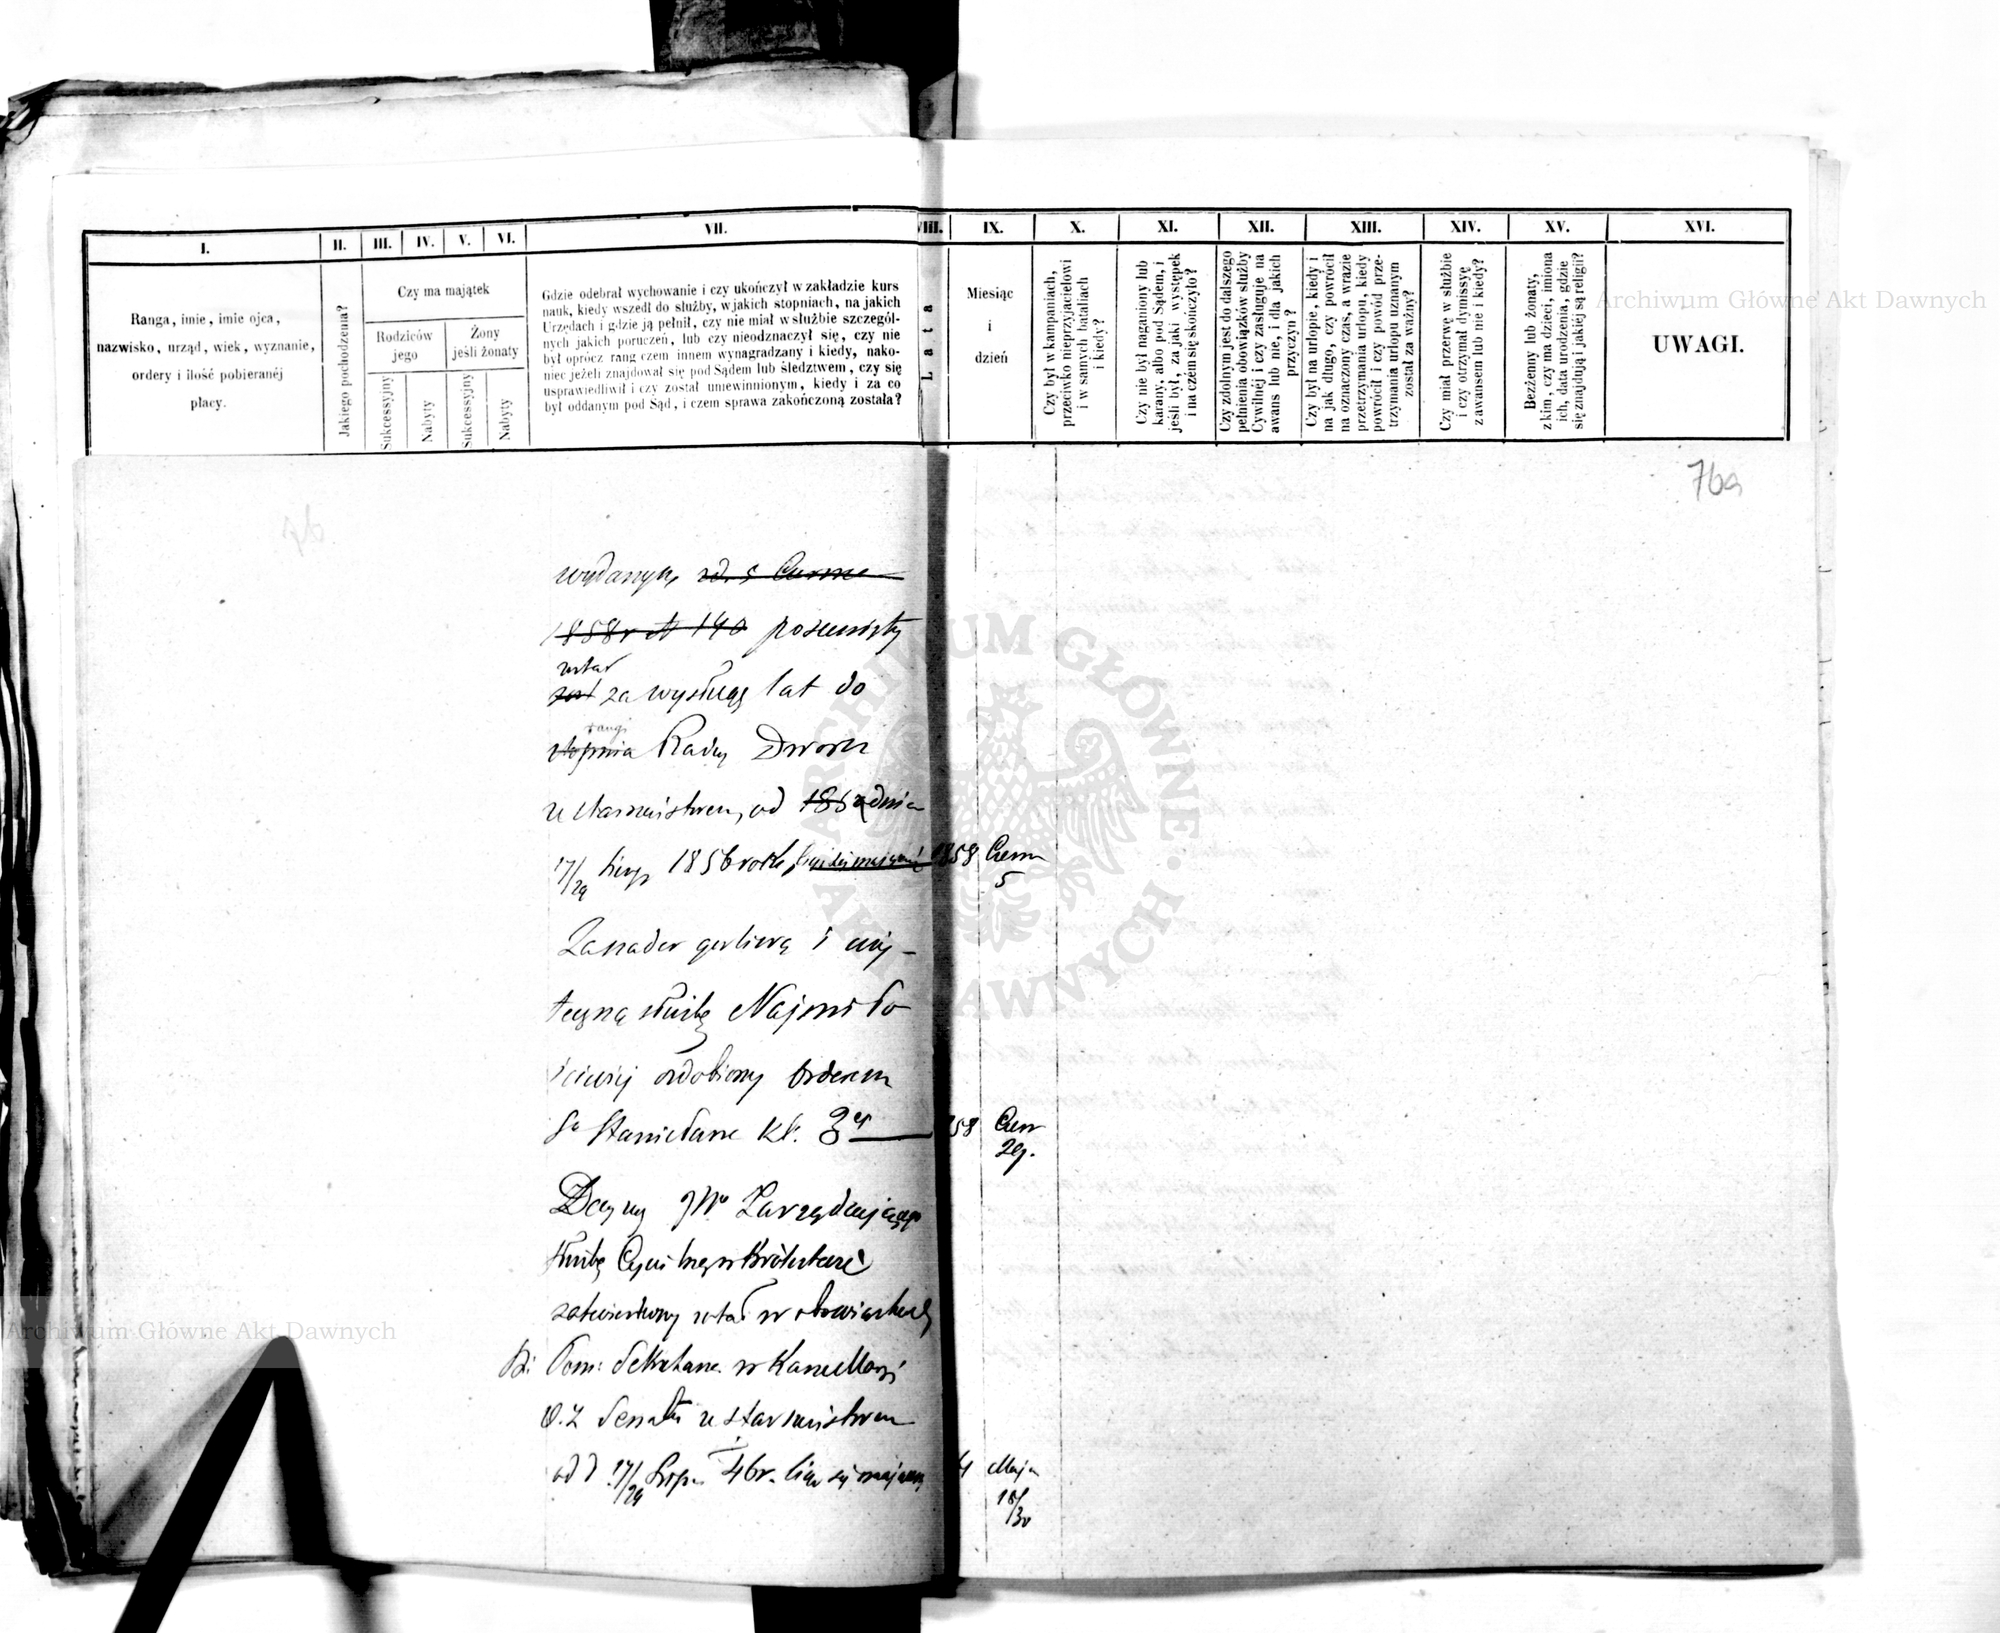 I. II. III. IV. V. VI. VII. VIII. IX. X. XI. XII. XIII. XIV. XV. XVI.
Ranga, imie, imie ojca,
nazwisko, urząd, wiek, wyznanie,
ordery i ilość pobieranéj
płacy.
Jakiego pochodzenia?
Czy ma majątek
Rodziców
jego
Żony
jeśli żonaty
Sukcessyjny
Nabyty
Sukcessyjny
Nabyty
Gdzie odebrał wychowanie i czy ukończył w zakładzie kurs
nauk, kiedy wszedł do służby, w jakich stopniach, na jakich
Urzędach i gdzie ją pełnił, czy nie miał w służbie szczegól-
nych jakich poruczeń, lub czy nieodznaczył się, czy nie
był oprócz rang czem innem wynagradzany i kiedy, nako-
niec jeżeli znajdował się pod Sądem lub śledztwem, czy się
usprawiedliwił i czy został uniewinnionym, kiedy i za co
był oddanym pod Sąd, i czem sprawa zakończoną została?
Lata
Miesiąc
i
dzień
Czy był w kampaniach,
przeciwko nieprzyjacielowi
i w samych bataliach
i kiedy?
Czy nie był naganiony lub
karany, albo pod Sądem, i
jeśli był, za jaki występek
i na czem się skończyło?
Czy zdolnym jest do dalszego
pełnienia obowiązków służby
Cywilnéj i czy zasługuje na
awans lub nie, i dla jakich
przyczyn?
Czy był na urlopie, kiedy i
na jak długo, czy powrócił
na oznaczony czas, a w razie
przetrzymania urlopu, kiedy
powrócił i czy powód prze-
trzymania urlopu uznanym
został za ważny?
Czy miał przerwę w służbie
i czy otrzymał dymissyę
z awansem lub nie i kiedy?
Bezżenny lub żonaty,
z kim, czy ma dzieci, imiona
ich, data urodzenia, gdzie
się znajdują i jakiej są religii?
UWAGI.
76a
wydanym, od 5 Czerwca
1858 r N 140 posunięty
został
za wysługę lat do
rangi
stopnia Radcy Dworu
ze starszeństwem, od dnia
17/29 Sierp 1856 roku, 1858 Czerw
5
Zanader gorliwą i uży-
teczną służbę Najmiło
ściwiej ozdobiony Orderem
Sgo Stanisława Kl. 3ej 858 Czerw
29.
Decyzyą JWo Zarządzającego
służbą Cywilną w Królestwie
zatwierdzony został w obowiązkach
Pom: Sekretarza w Kancellaryi
O. Z Senatu ze starszeństwem
od d 17/29 Sierp. liczyć się mającem Maja
18/30
Archiwum Główne Akt Dawnych
Archiwum Główne Akt Dawnych
ARCHIWUM GŁÓWNE AKT DAWNYCH